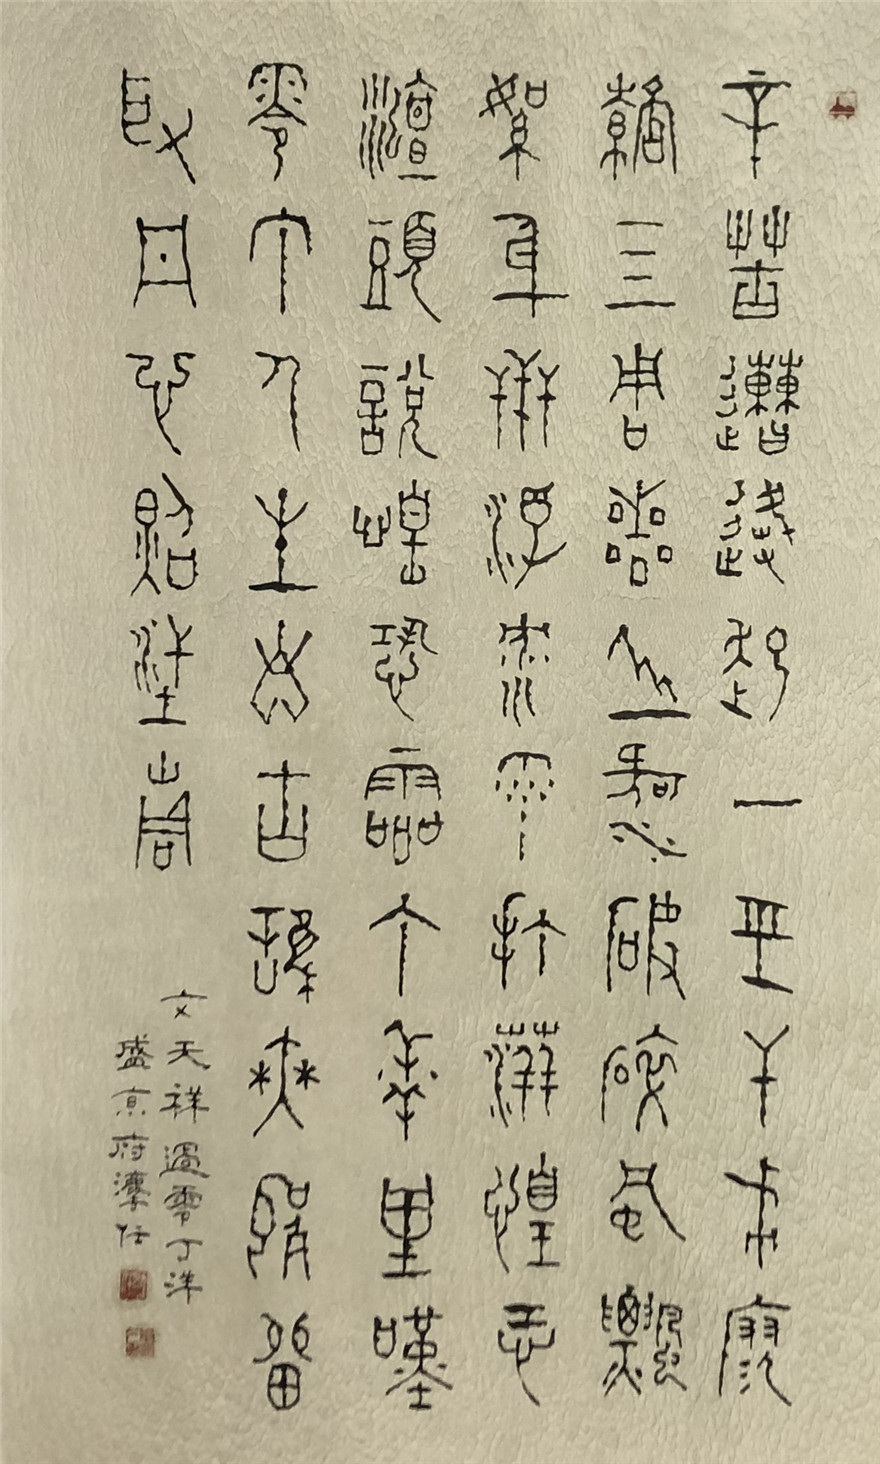 辛苦遭逢起一經干戈寥
落四周星山河破碎風飄
絮身世浮沉雨打萍惶恐
灘頭說惶恐零丁洋里嘆
零丁人生自古誰無死留
取丹心照汗青
文天祥過零丁洋
盛京府任